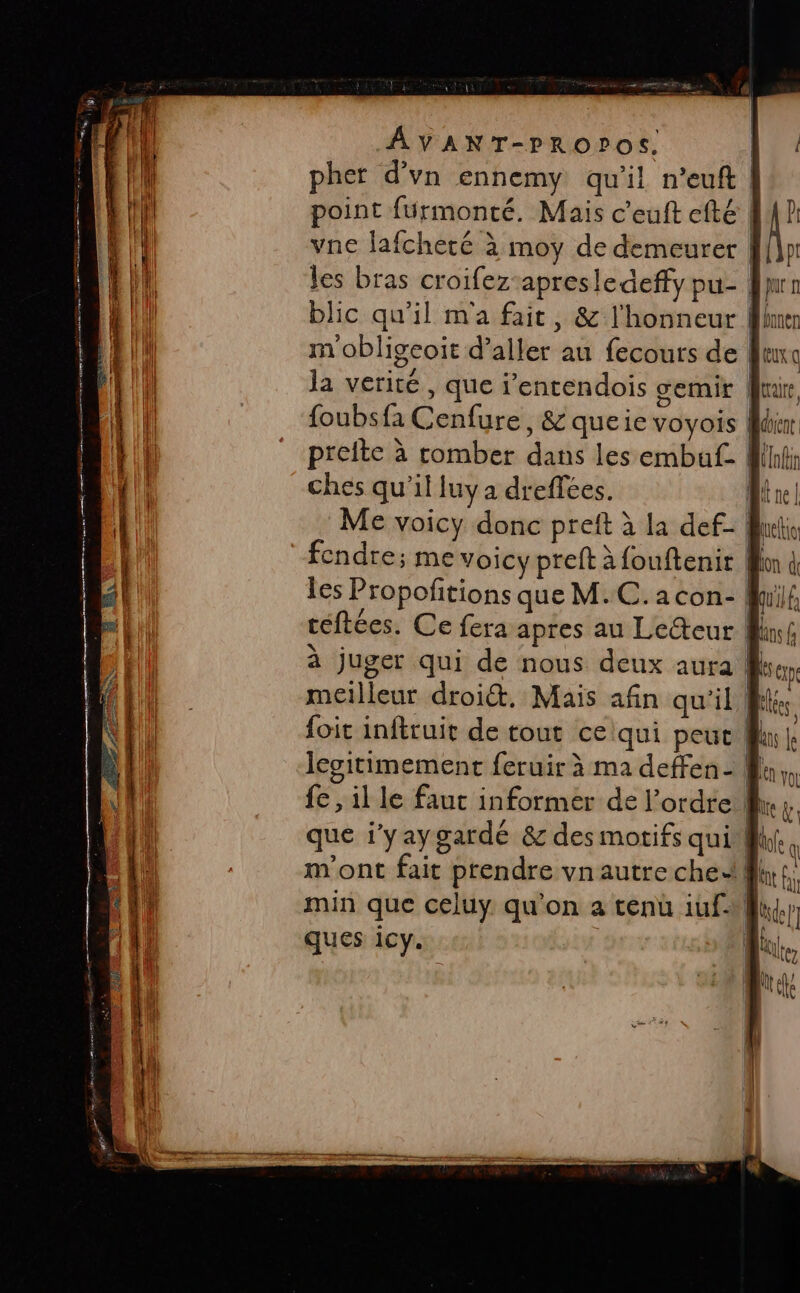 AVANT-PROPOS.
phet d'vn ennemy qu'il n'euſt
point ſurmonté. Mais c'euſt eſté
vne laſcheté à moy de demeurer
les bras croiſez apres le deffy pu-
blic qu'il m'a fait, & l'honneur
m'obligeoit d'aller au ſecours de
la verité, que i'entendois gemir
ſoubs ſa Cenſure, & que ie voyois
preſte à tomber dans les embuſ-
ches qu'il luy a dreſſées.
Me voicy donc preſt à la def-
fendre; me voicy preſt à ſouſtenir
les Propoſitions que M. C. a con-
teſtées. Ce ſera apres au Lecteur
à juger qui de nous deux aura
meilleur droict. Mais afin qu'il
ſoit inſtruit de tout ce qui peut
legitimement ſeruir à ma deffen-
ſe, il le faut informer de l'ordre
que i'y ay gardé & des motifs qui
m'ont fait prendre vn autre che-
min que celuy qu'on a tenu iuſ-
ques icy.